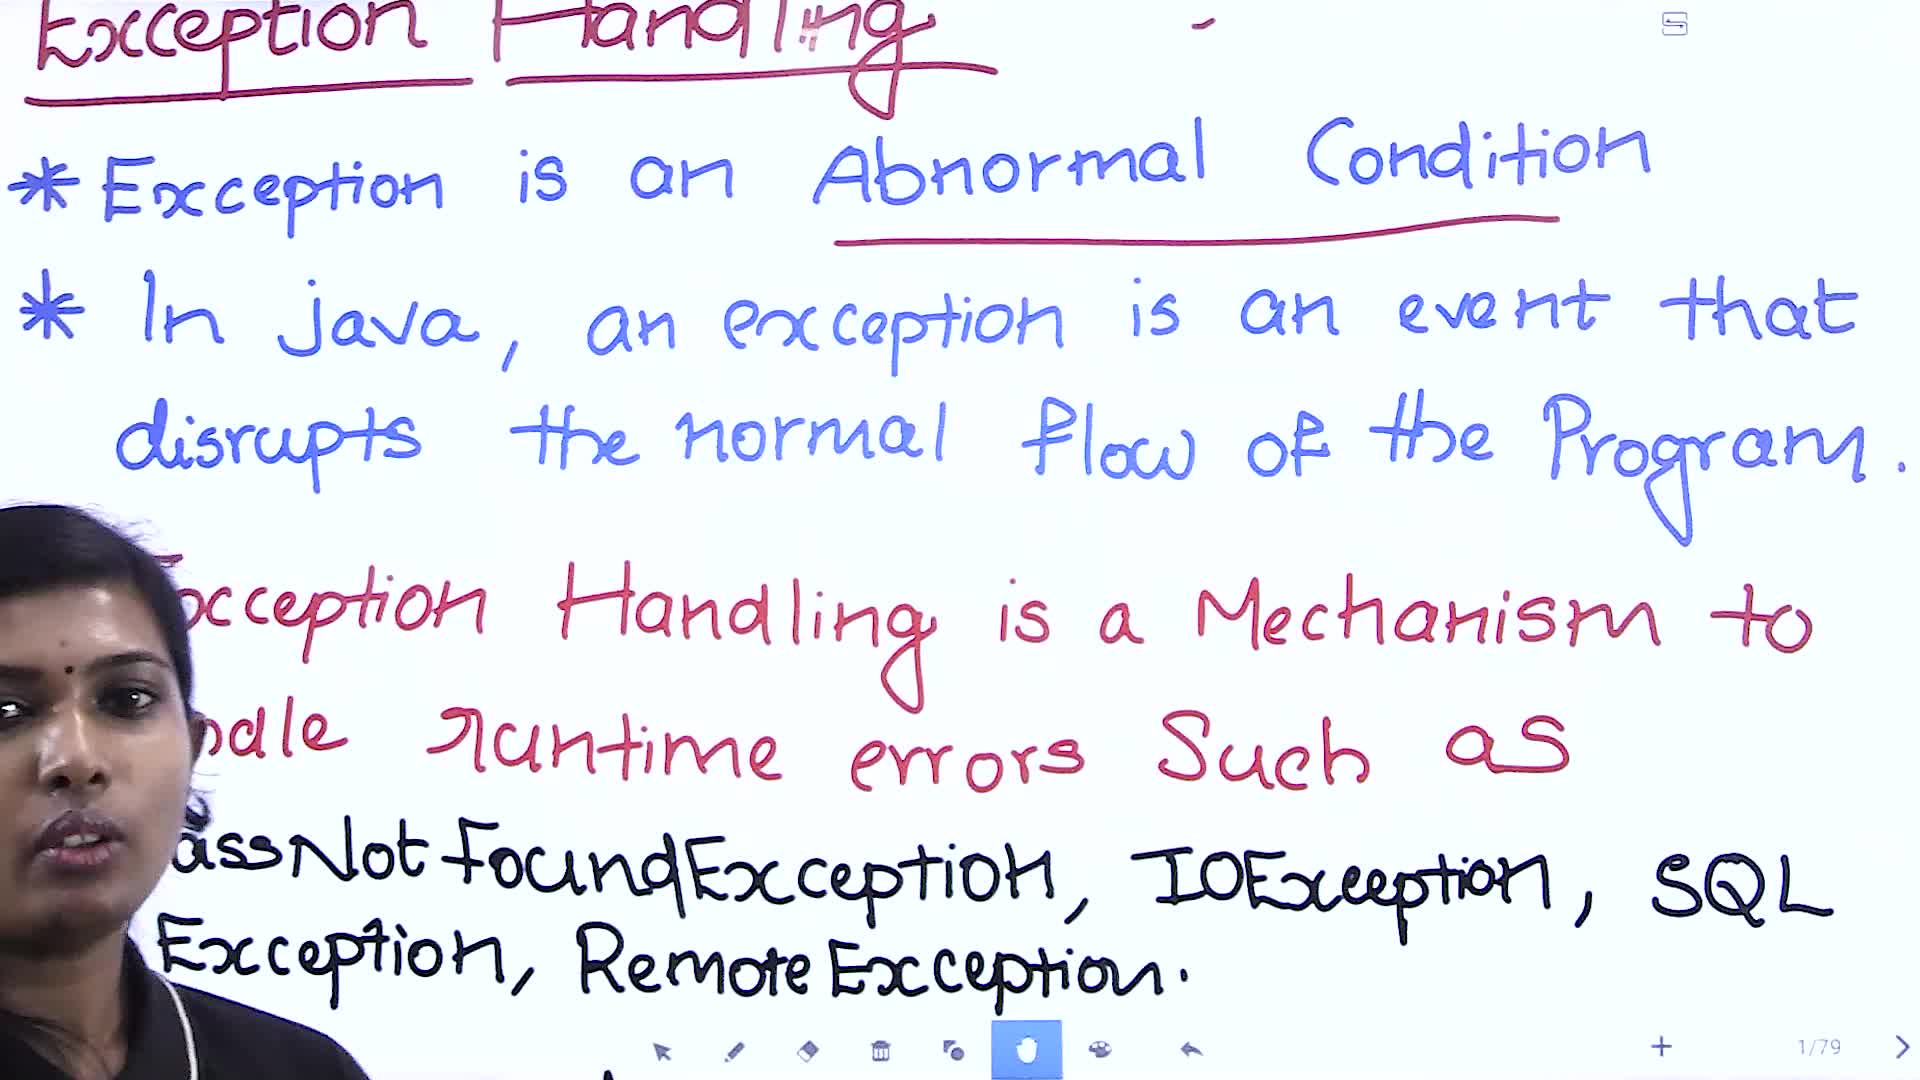 Exception Handling
* Exception is an Abnormal Condition
* In java, an exception is an event that
disrupts the normal flow of the Program.
Exception Handling is a Mechanism to
ndle runtime errors Such as
assNotFoundException, IOException, SQL
Exception, RemoteException.
1/79